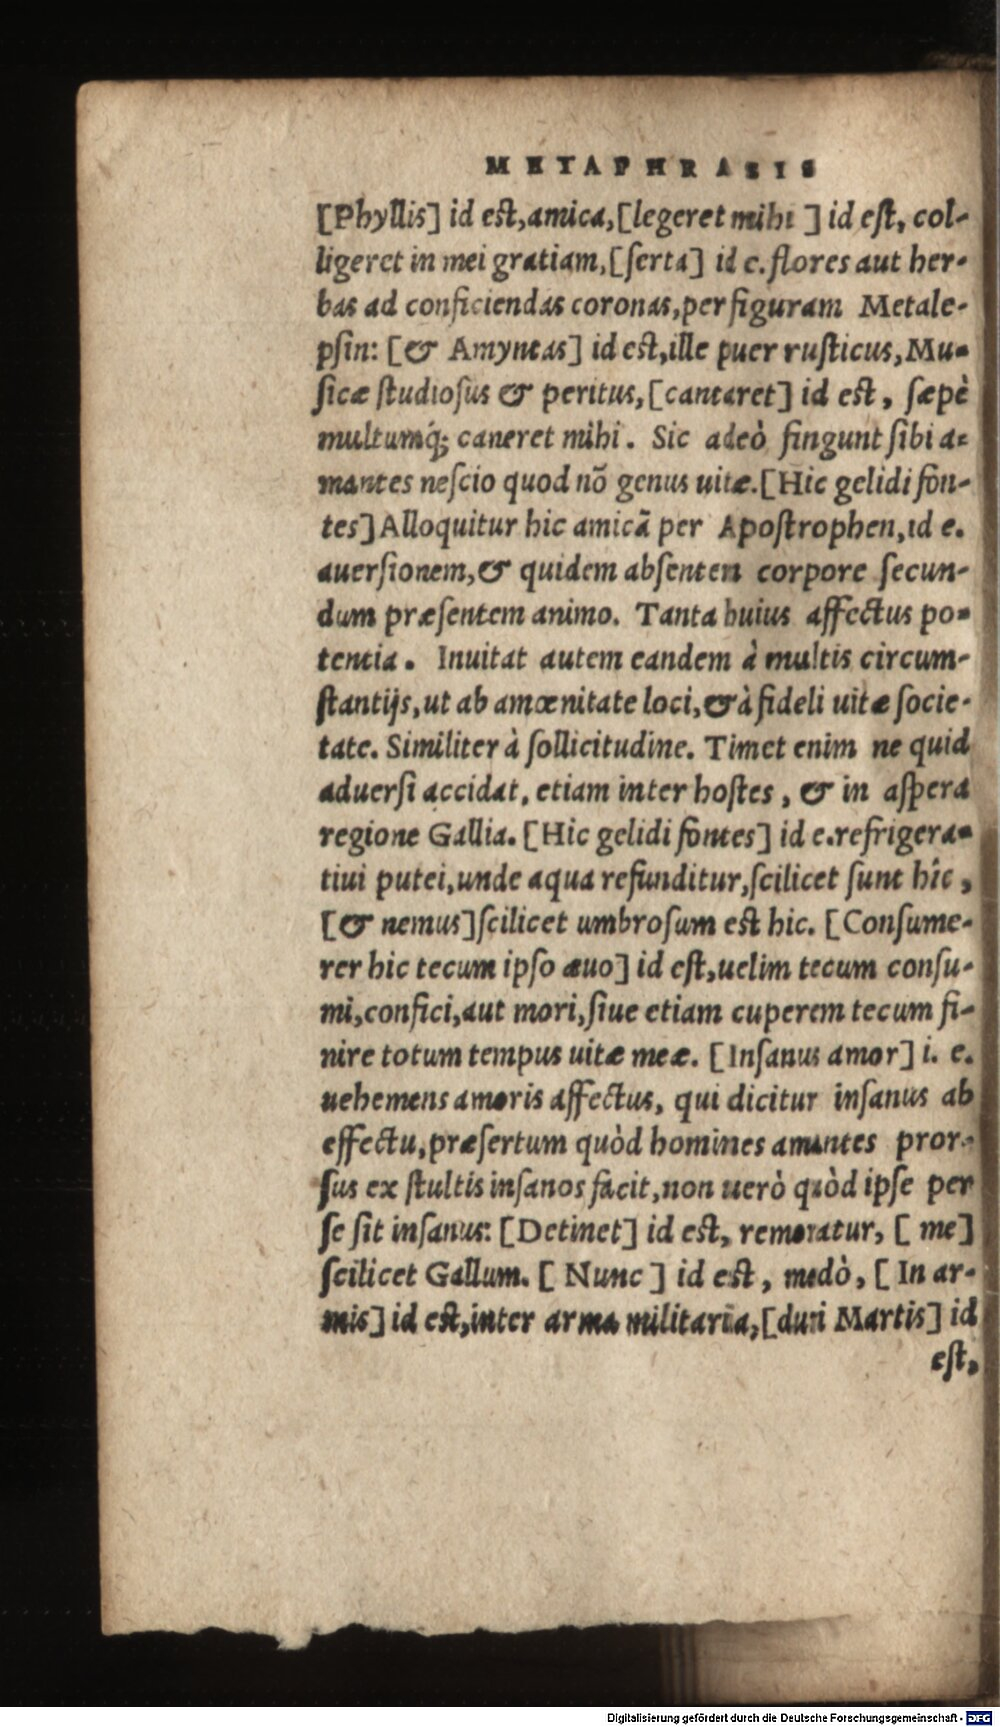 METAPHRASIS
[Phyllis] id est,amica,[legeret mihi ] id est, col-
ligeret in mei gratiam,[ſerta] id e.flores aut her-
bas ad conficiendas coronas,per figuram Metale-
pſin: [& Amyntas] id est,ille puer ruſticus,Mu-
ſicæ ſtudioſus & peritus,[cantaret] id est, ſæpè
multumq́; caneret mihi. Sic adeò fingunt ſibi a-
mantes neſcio quod nõ genus uitæ.[Hic gelidi fon-
tes]Alloquitur hic amicã per Apoſtrophen,id e.
auerſionem,& quidem abſentem corpore ſecun-
dum præſentem animo. Tanta huius affectus po-
tentia. Inuitat autem eandem à multis circum-
ſtantijs,ut ab amœnitate loci,& à fideli uitæ ſocie-
tate. Similiter à ſollicitudine. Timet enim ne quid
aduerſi accidat, etiam inter hoſtes, & in aſpera
regione Gallia. [Hic gelidi fontes] id e.refrigera-
tiui putei,unde aqua refunditur,ſcilicet ſunt hîc,
[& nemus]ſcilicet umbroſum est hic. [Conſume-
rer hic tecum ipſo æuo] id eſt,uelim tecum conſu-
mi,confici,aut mori,ſiue etiam cuperem tecum fi-
nire totum tempus uitæ meæ. [Inſanus amor] i. e.
uehemens amoris affectus, qui dicitur inſanus ab
effectu,præſertum quòd homines amantes pror-
ſus ex ſtultis inſanos facit,non uerò quòd ipſe per
ſe ſit inſanus: [Detinet] id est, remoratur, [ me]
ſcilicet Gallum. [ Nunc ] id est, modò, [ In ar-
mis] id est,inter arma militaria,[duri Martis] id
eſt,
Digitalisierung gefördert durch die Deutsche Forschungsgemeinschaft - DFG